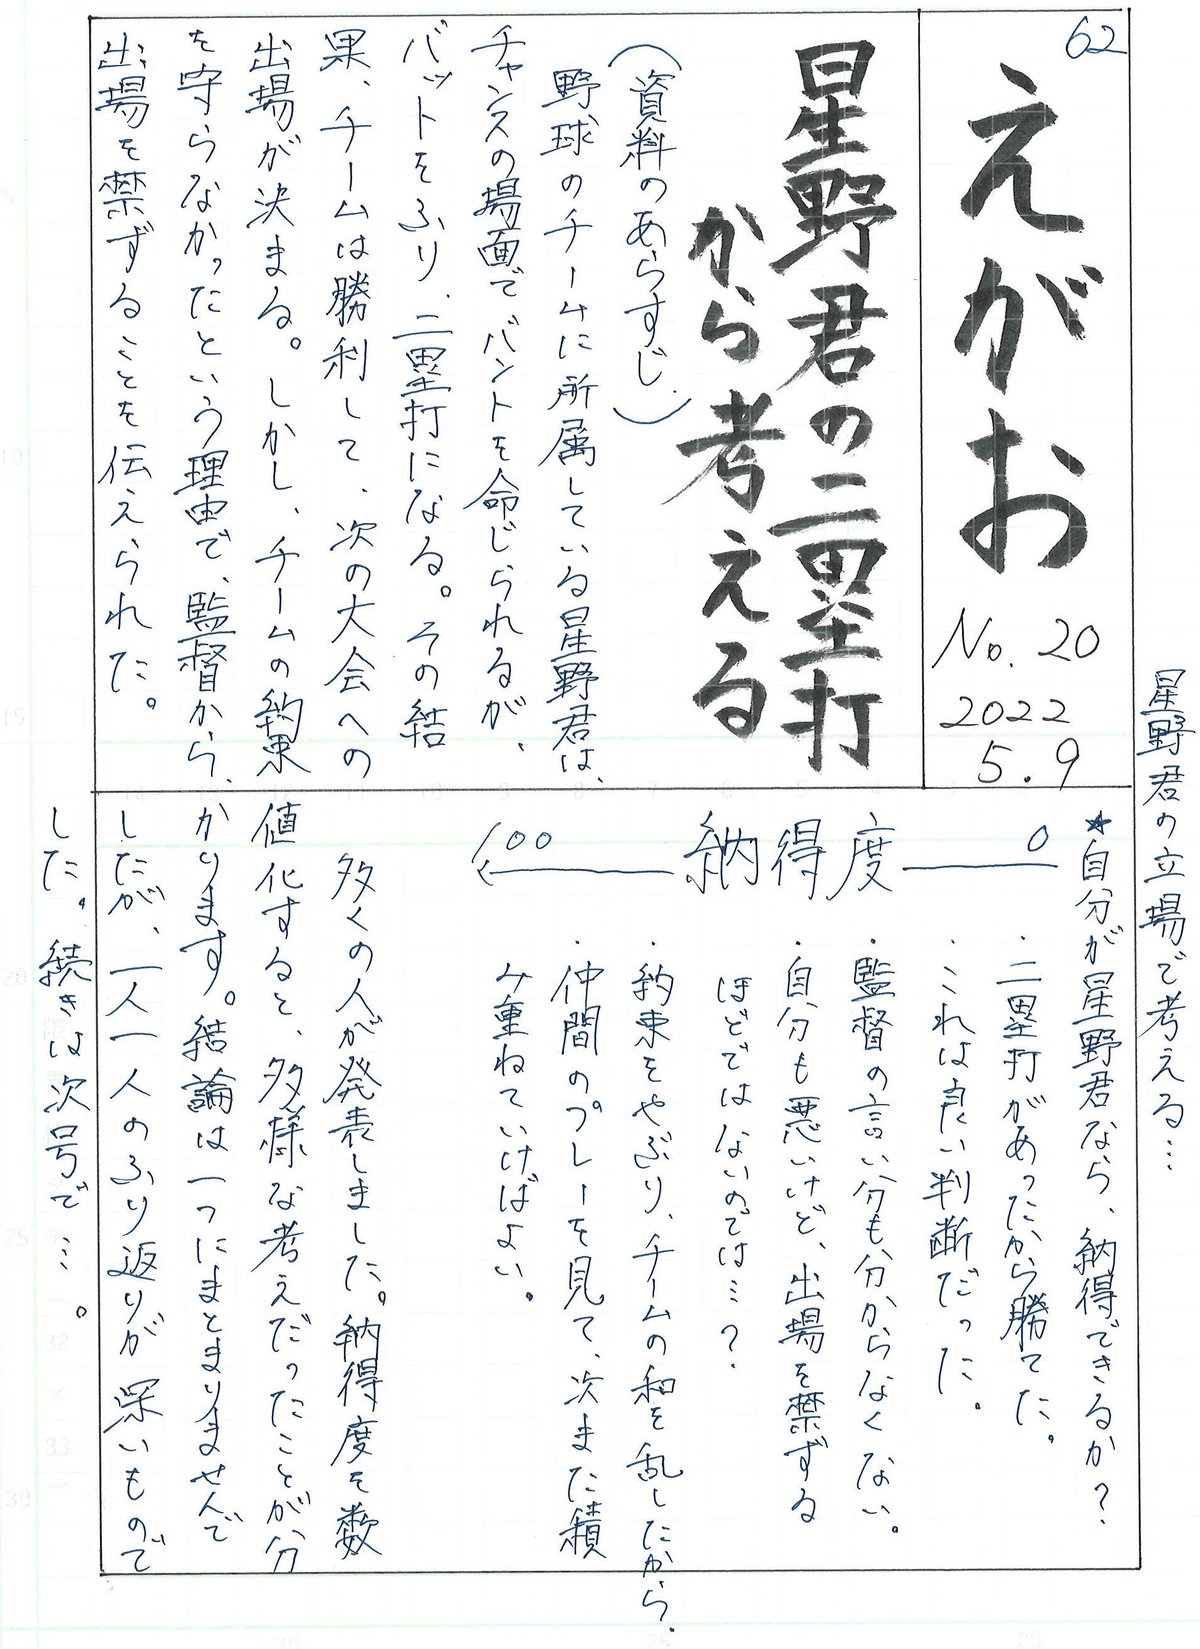 62
えがお
No. 20
2022
5.9
星野君の二塁打
から考える
(資料のあらすじ)
野球のチームに所属している星野君は、
チャンスの場面でバントを命じられるが、
バットをふり、二塁打になる。その結
果、チームは勝利して、次の大会への
出場が決まる。しかし、チームの約束
を守らなかったという理由で、監督から、
出場を禁ずることを伝えられた。
星野君の立場で考える…
★自分が星野君なら、納得できるか?
0 納得度 100
・二塁打があったから勝てた。
これは良い判断だった。
・監督の言い分も分からなくない。
・自分も悪いけど、出場を禁ずる
ほどではないのでは…?
・約束をやぶり、チームの和を乱したから。
・仲間のプレーを見て、次また積
み重ねていけばよい。
多くの人が発表しました。納得度を数
値化すると、多様な考えだったことが分
かります。結論は一つにまとまりませんで
したが、一人一人のふり返りが深いもので
した。続きは次号で…。